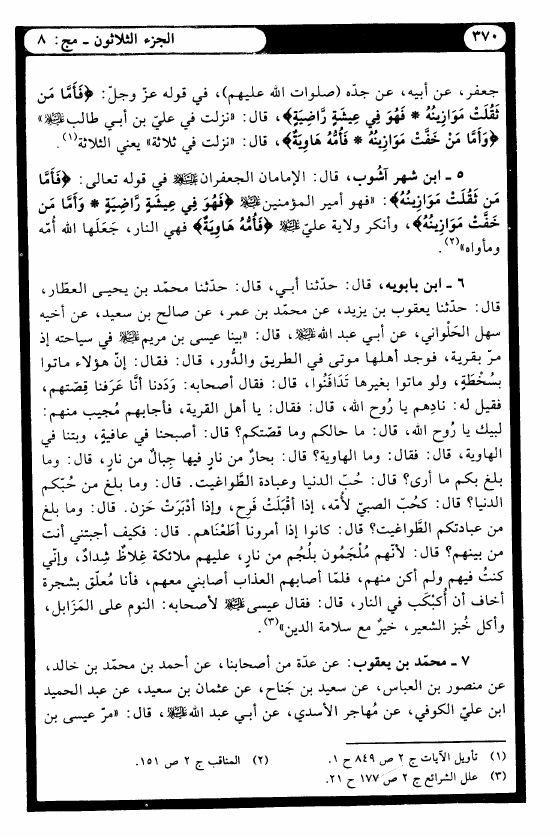 ٣٧٠
الجزء الثلاثون ـ مج: ٨
جعفر، عن أبيه، عن جدّه (صلوات الله عليهم)، في قوله عزّ وجلّ: ﴿فَأَمَّا مَن
ثَقُلَتْ مَوَازِينُهُ * فَهُوَ فِي عِيشَةٍ رَّاضِيَةٍ﴾، قال: «نزلت في عليّ بن أبي طالب عليه السلام»
﴿وَأَمَّا مَنْ خَفَّتْ مَوَازِينُهُ * فَأُمُّهُ هَاوِيَةٌ﴾، قال: «نزلت في ثلاثة» يعني الثلاثة(١).
٥ ـ ابن شهر آشوب، قال: الإمامان الجعفران عليه السلام في قوله تعالى: ﴿فَأَمَّا
مَن ثَقُلَتْ مَوَازِينُهُ﴾: «فهو أمير المؤمنين عليه السلام ﴿فَهُوَ فِي عِيشَةٍ رَاضِيَةٍ * وَأَمَّا مَن
خَفَّتْ مَوَازِينُهُ﴾، وأنكر ولاية عليّ عليه السلام ﴿فَأُمُّهُ هَاوِيَةٌ﴾ فهي النار، جَعَلَها الله أُمّه
ومأواه»(٢).
٦ ـ ابن بابويه، قال: حدّثنا أبي، قال: حدّثنا محمّد بن يحيى العطّار،
قال: حدّثنا يعقوب بن يزيد، عن محمّد بن عمر، عن صالح بن سعيد، عن أخيه
سهل الحَلْواني، عن أبي عبد الله عليه السلام، قال: «بينا عيسى بن مريم عليه السلام في سياحته إذ
مرّ بقرية، فوجد أهلها موتى في الطريق والدُّور، قال: فقال: إنّ هؤلاء ماتوا
بسُخْطَةٍ، ولو ماتوا بغيرها تَدَافَنُوا، قال: فقال أصحابه: وَدَدنا أنَّا عَرَفنا قِصّتهم،
فقيل له: نادِهم يا رُوح الله، قال: فقال: يا أهل القرية، فأجابهم مُجيب منهم:
لبيك يا رُوح الله، قال: ما حالكم وما قصّتكم؟ قال: أصبحنا في عافيةٍ، وبتنا في
الهاوية، قال: فقال: وما الهاوية؟ قال: بحارٌ من نارٍ فيها جِبالٌ من نارٍ، قال: وما
بلغ بكم ما أرى؟ قال: حُبّ الدنيا وعبادة الطَّواغيت. قال: وما بلغ من حُبّكم
الدنيا؟ قال: كحُبّ الصبيّ لأُمّه، إذا أقْبَلَتْ فَرِح، وإذا أدْبَرَتْ حَزِن. قال: وما بلغ
من عبادتكم الطَّواغيت؟ قال: كانوا إذا أمرونا أطَعْنَاهم. قال: فكيف أجبتني أنت
من بينهم؟ قال: لأنّهم مُلْجَمُون بلُجُم من نارٍ، عليهم ملائكة غِلاظٌ شِدادٌ، وإنّي
كنتُ فيهم ولم أكن منهم، فلمّا أصابهم العذاب أصابني معهم، فأنا مُعلّق بشجرة
أخاف أن أُكَبْكَب في النار، قال: فقال عيسى عليه السلام لأصحابه: النوم على المَزَابل،
وأكل خُبز الشعير، خيرٌ مع سلامة الدين»(٣).
٧ ـ محمّد بن يعقوب: عن عدّة من أصحابنا، عن أحمد بن محمّد بن خالد،
عن منصور بن العباس، عن سعيد بن جَناح، عن عثمان بن سعيد، عن عبد الحميد
ابن عليّ الكوفي، عن مُهاجر الأسدي، عن أبي عبد الله عليه السلام، قال: «مرّ عيسى بن
(١) تأويل الآيات ج ٢ ص ٨٤٩ ح ١.
(٢) المناقب ج ٢ ص ١٥١.
(٣) علل الشرائع ج ٢ ص ١٧٧ ح ٢١.